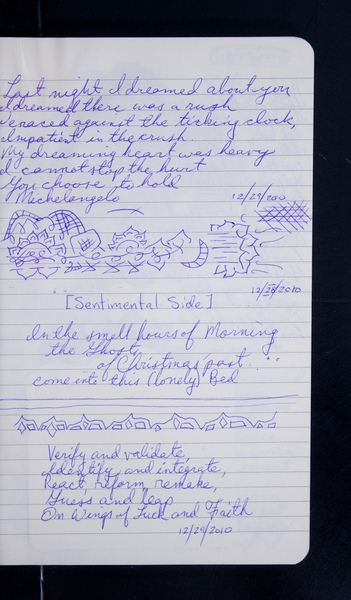 Last night I dreamed about you
I dreamed there was a rush
raced against the ticking clock,
Impatient in the crush
My dreaming heart was heavy
I cannot stop the hurt
You choose to hold
Michelangelo
12/29/2010
12/28/2010
[Sentimental Side]
In the small hours of Morning
the Ghosts
of Christmas past...
come into this (lonely) Bed
Verify and validate,
Identify and integrate,
React, reform, remake,
Guess and leap
On Wings of Luck and Faith
12/29/2010